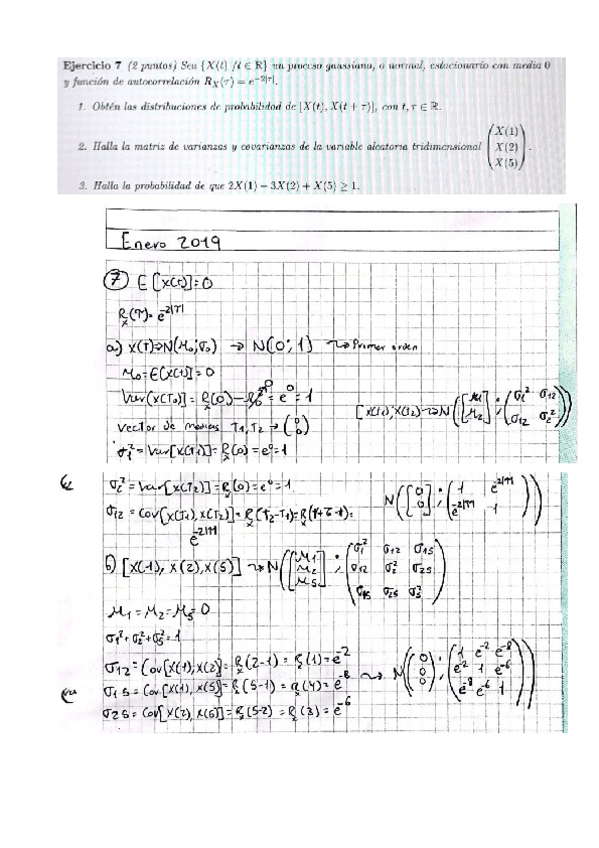 Ejercicio 7 (2 puntos) Sea {X(t) /t ∈ ℝ} un proceso gaussiano, o normal, estacionario con media 0
y función de autocorrelación R_X(τ) = e^{-2|τ|}.
1. Obtén las distribuciones de probabilidad de [X(t), X(t + τ)], con t, τ ∈ ℝ.
2. Halla la matriz de varianzas y covarianzas de la variable aleatoria tridimensional (X(1) X(2) X(5)).
3. Halla la probabilidad de que 2X(1) − 3X(2) + X(5) ≥ 1.
Enero 2019
⑦ E[X(t)]=0
R_x(τ)= e^{-2|τ|}
a) X(T)→N(μ_0;σ_0) → N(0;1) → Primer orden
μ_0=E[X(t)]=0
Var(X(T_0)]= R_x(0)- = e^0 = 1
[X(t_1),X(t_2) → N([μ_1 μ_2];(σ_1^2 σ_12 σ_12 σ_2^2))
vector de medias T_1,T_2 → (0 0)
σ_1^2=Var[X(T_1)]=R_x(0)=e^0=1
σ_2^2=Var[X(T_2)]=R_x(0)=e^0=1
N([0 0];(1 e^{-2|τ|} e^{-2|τ|} 1))
σ_12 = Cov[X(T_1),X(T_2)]=R_x(T_2-T_1)=R_x(T+τ-t)=
e^{-2|τ|}
b) [X(1), X(2),X(5)] → N([μ_1 μ_2 μ_5];(σ_1^2 σ_12 σ_15 σ_12 σ_2^2 σ_25 σ_15 σ_25 σ_5^2))
μ_1=μ_2=μ_5=0
σ_1^2+σ_2^2+σ_5^2=1
σ_12=Cov[X(1),X(2)]=R_x(2-1)=R_x(1)=e^{-2}
σ_15=Cov[X(1),X(5)]=R_x(5-1)=R_x(4)=e^{-8} → N((0 0 0);(1 e^{-2} e^{-8} e^{-2} 1 e^{-6} e^{-8} e^{-6} 1))
σ_25=Cov[X(2),X(5)]=R_x(5-2)=R_x(3)=e^{-6}